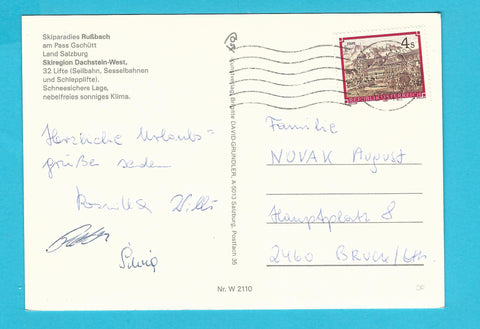 Skiparadies Rußbach
am Pass Gschütt
Land Salzburg
Skiregion Dachstein-West,
32 Lifte (Seilbahn, Sesselbahnen
und Schlepplifte).
Schneesichere Lage,
nebelfreies sonniges Klima.
Herzliche Urlaubs=
grüße senden
Willi
Silvia
Kunstverlag Brigitte DAVID-GRUNDLER, A-5013 Salzburg, Postfach 35
Nr. W 2110
4 S
REPUBLIK ÖSTERREICH
Familie
NOVAK August
Hauptplatz 8
2460 BRUCK/Lth.